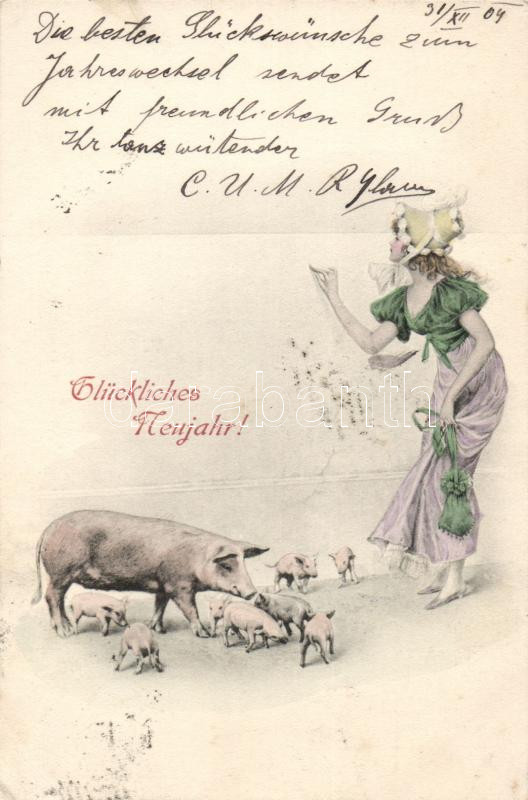 31/XII 04
Die besten Glückswünsche zum
Jahreswechsel sendet
mit freundlichen Gruß
Ihr tanzwütender
C. U. M.
Glückliches
Neujahr!
darabanth